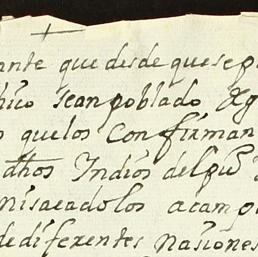 ante que desde que se p
hizo sean poblado
quelos Confirman
dhos Indios del pu
misaeadolos acamp
de diferentes nasiones